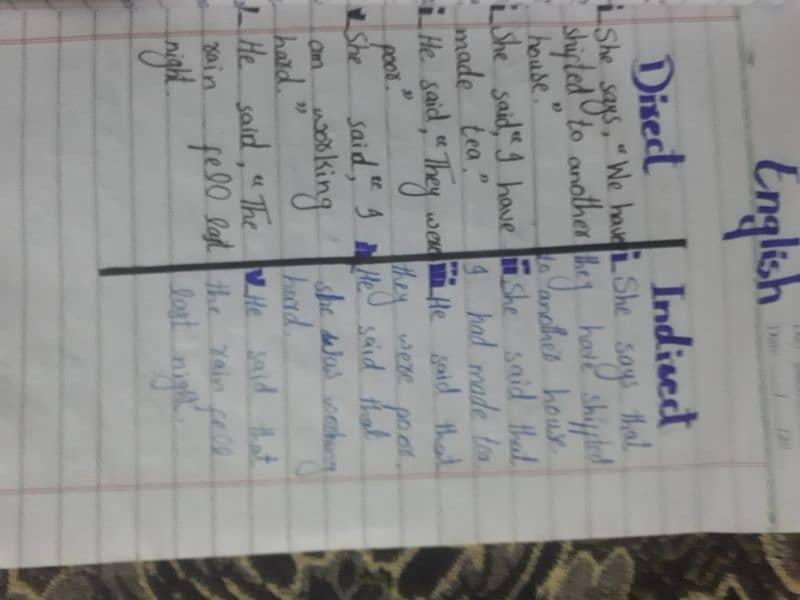 English
Direct
i She says, "We have
shifted to another
house."
i She said, "I have
made tea."
i He said, "They were
poor."
v She said, "I
am working
hard."
He said, "The
rain fell last
night
Indirect
i She says that
they have shifted
to another house.
ii She said that
I had made tea
iii He said that
they were poor.
iv He said that
she was working
hard.
v He said that
the rain fell
last night.